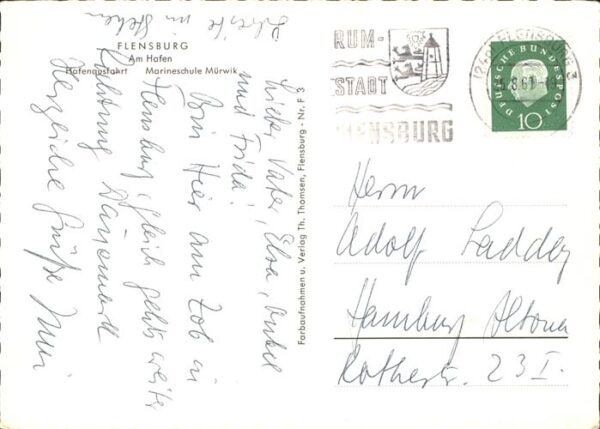 FLENSBURG
Am Hafen
Hafenausfahrt Marineschule Mürwik
Schreibe im Stehen
Lieber Vater, Elsa, Onkel
und Frida!
Bin Hier am Zob in
Flensburg, gleich gehts weiter
Richtung Dänemark
Herzliche Grüße
Farbaufnahmen u. Verlag Th. Thomsen, Flensburg - Nr. F 3
RUM-
STADT
FLENSBURG
FLENSBURG
DEUTSCHE BUNDESPOST
10
Herrn
Adolf Laddey
Hamburg Altona
Rothestr. 23 I.